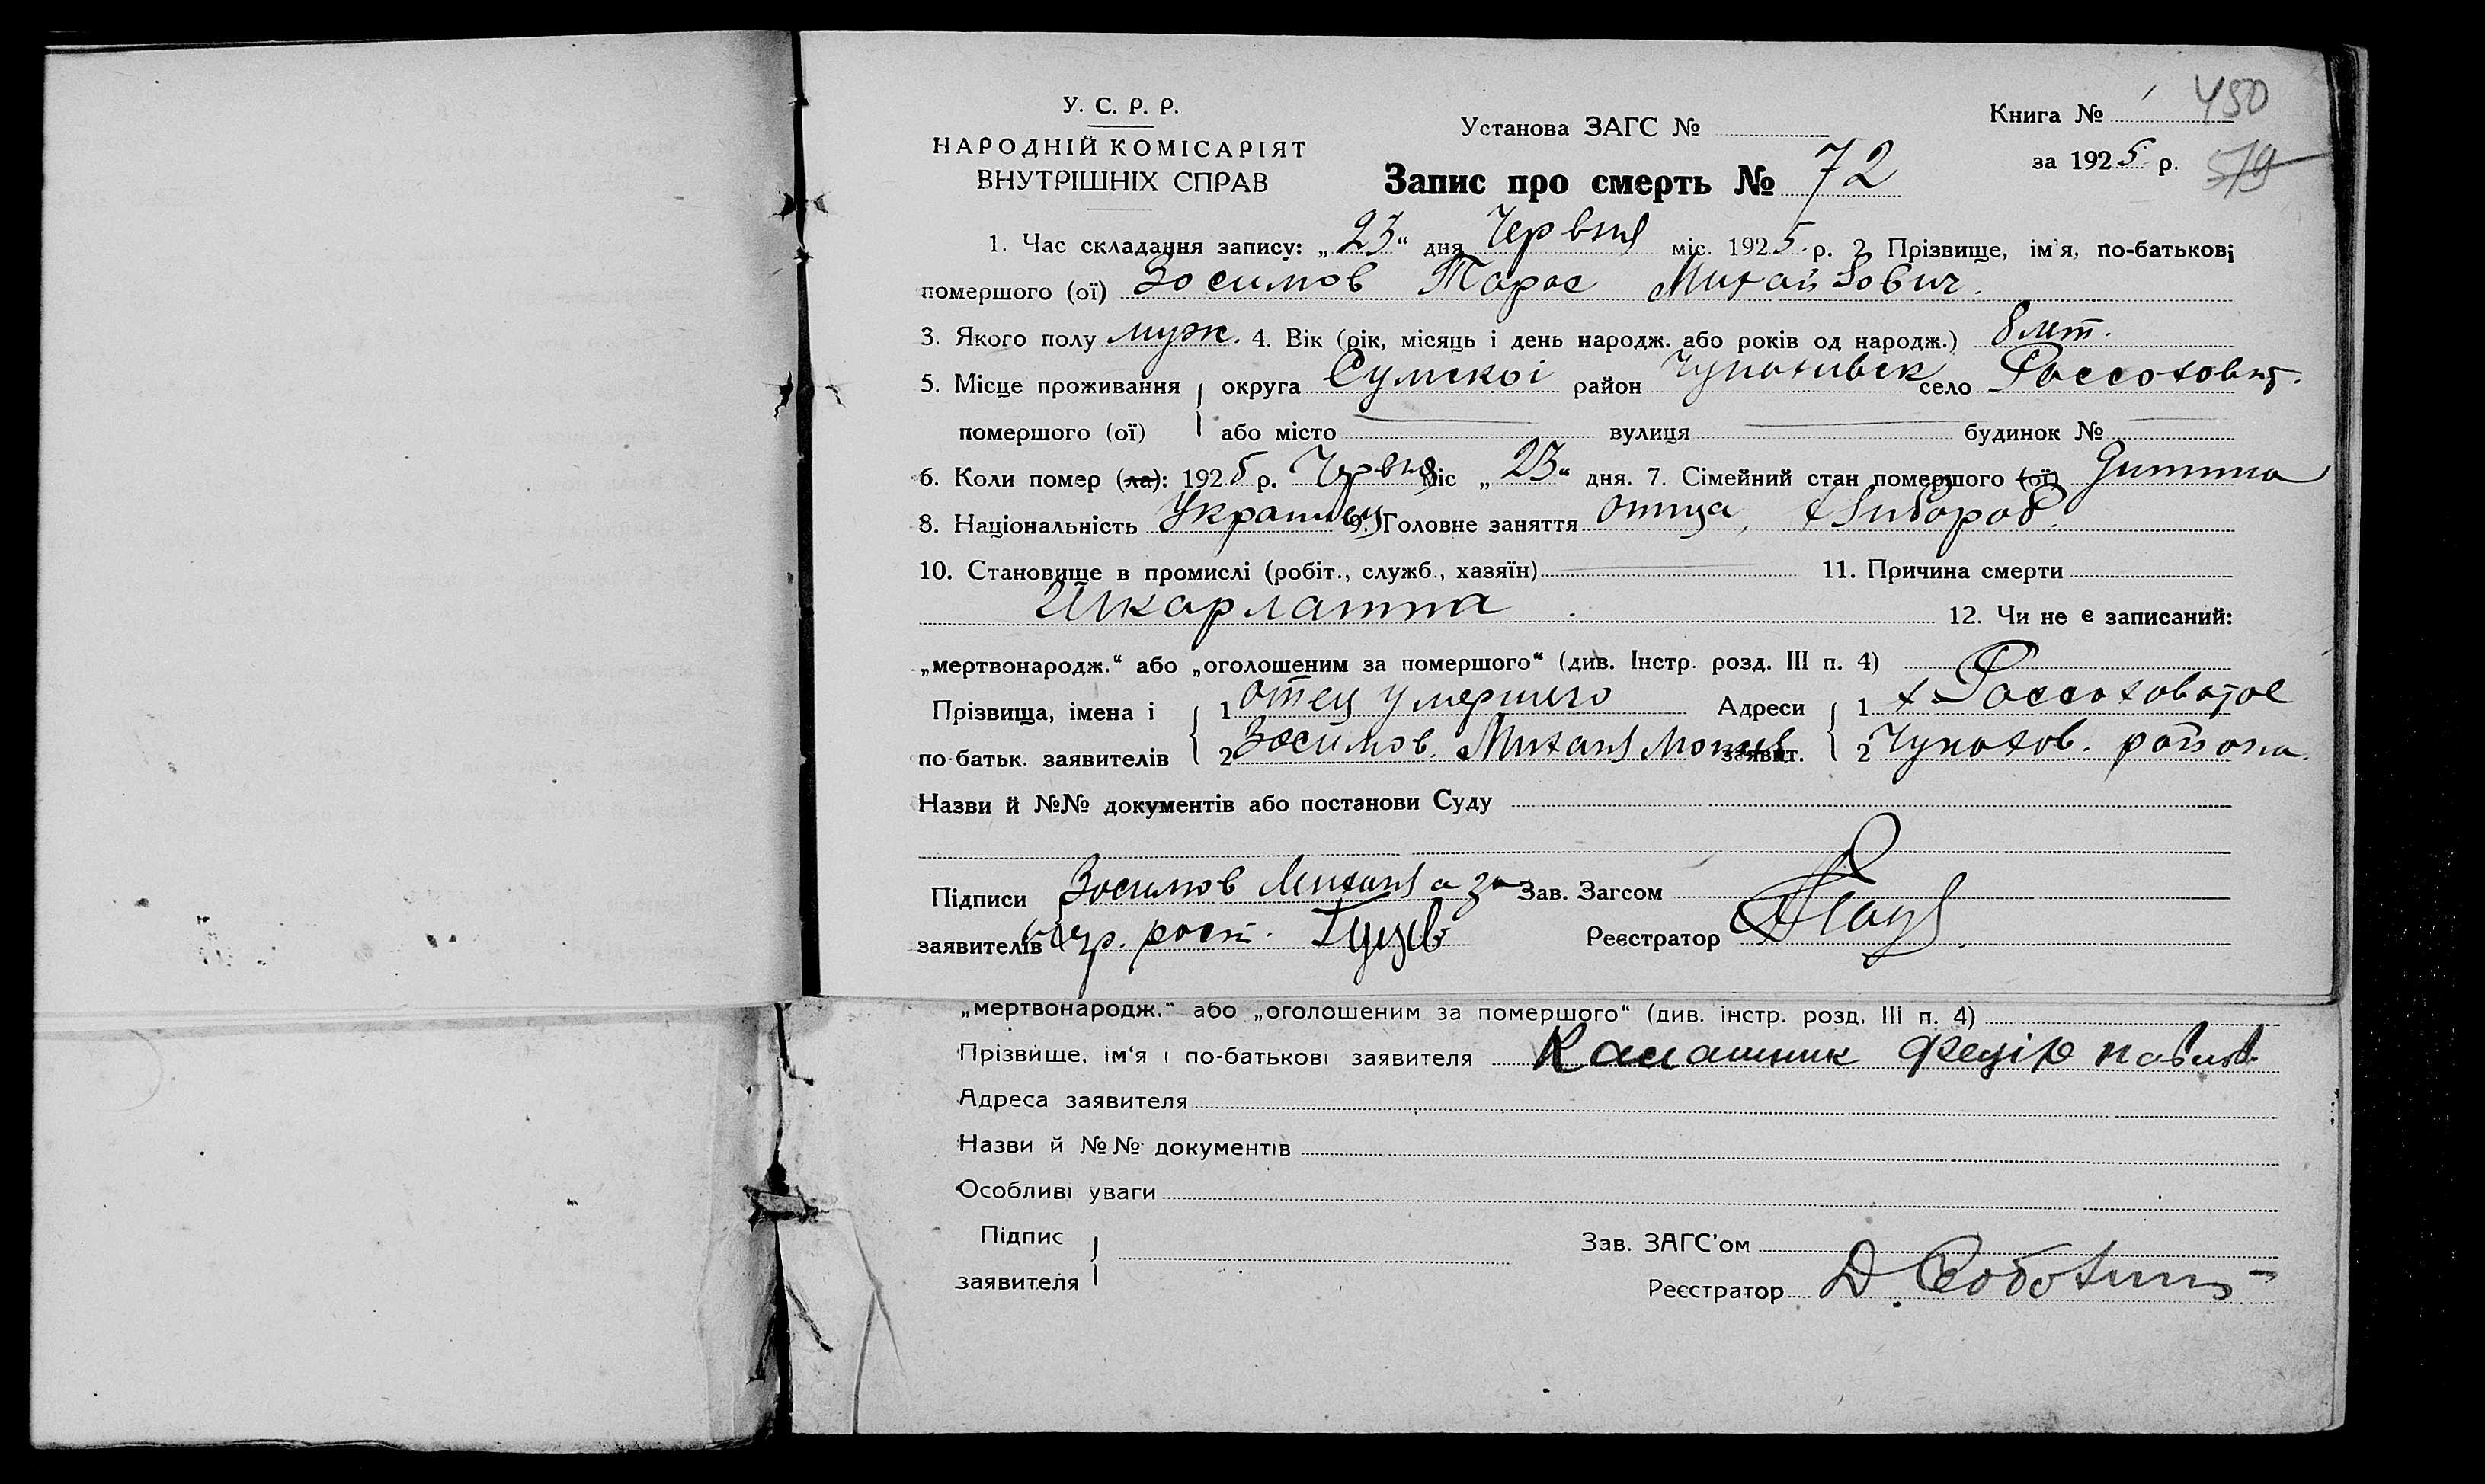 У. С. Р. Р.
НАРОДНІЙ КОМІСАРІЯТ
ВНУТРІШНІХ СПРАВ
Установа ЗАГС №
Запис про смерть № 72
Книга № 450
за 1925 р. 579
1. Час складання запису: „23“ дня Червня міс. 1925 р. 2. Прізвище, ім'я, по-батькові
помершого (ої) Зосимов Тарас Михайлович.
3. Якого полу муж. 4. Вік (рік, місяць і день народж. або років од народж.) 8 лет.
5. Місце проживання округа Сумскоі район Чупахивск село Россоховат.
помершого (ої) або місто вулиця будинок №
6. Коли помер (ла): 1925 р. Червня міс „23“ дня. 7. Сімейний стан помершого (ої) Дитина
8. Національність Украинец 9. Головне заняття отца, хлибороб.
10. Становище в промислі (робіт., служб., хазяїн) 11. Причина смерти
Шкарлатта 12. Чи не є записаний:
„мертвонародж.“ або „оголошеним за помершого“ (див. Інстр. розд. III п. 4)
Прізвища, імена і 1 отец умершего Адреси 1 х Россоховатое
по батьк. заявителів 2 Зосимов. Михаил заявит. 2 Чупахов. района.
Назви й №№ документів або постанови Суду
Підписи Зосимов Михаил а за Зав. Загсом
заявителів негр. росп. Реєстратор
„мертвонародж.“ або „оголошеним за помершого“ (див. інстр. розд. III п. 4)
Прізвище, ім'я і по-батькові заявителя Калашник Федір Павлов
Адреса заявителя
Назви й №№ документів
Особливі уваги
Підпис Зав. ЗАГС'ом
заявителя Реєстратор Д.